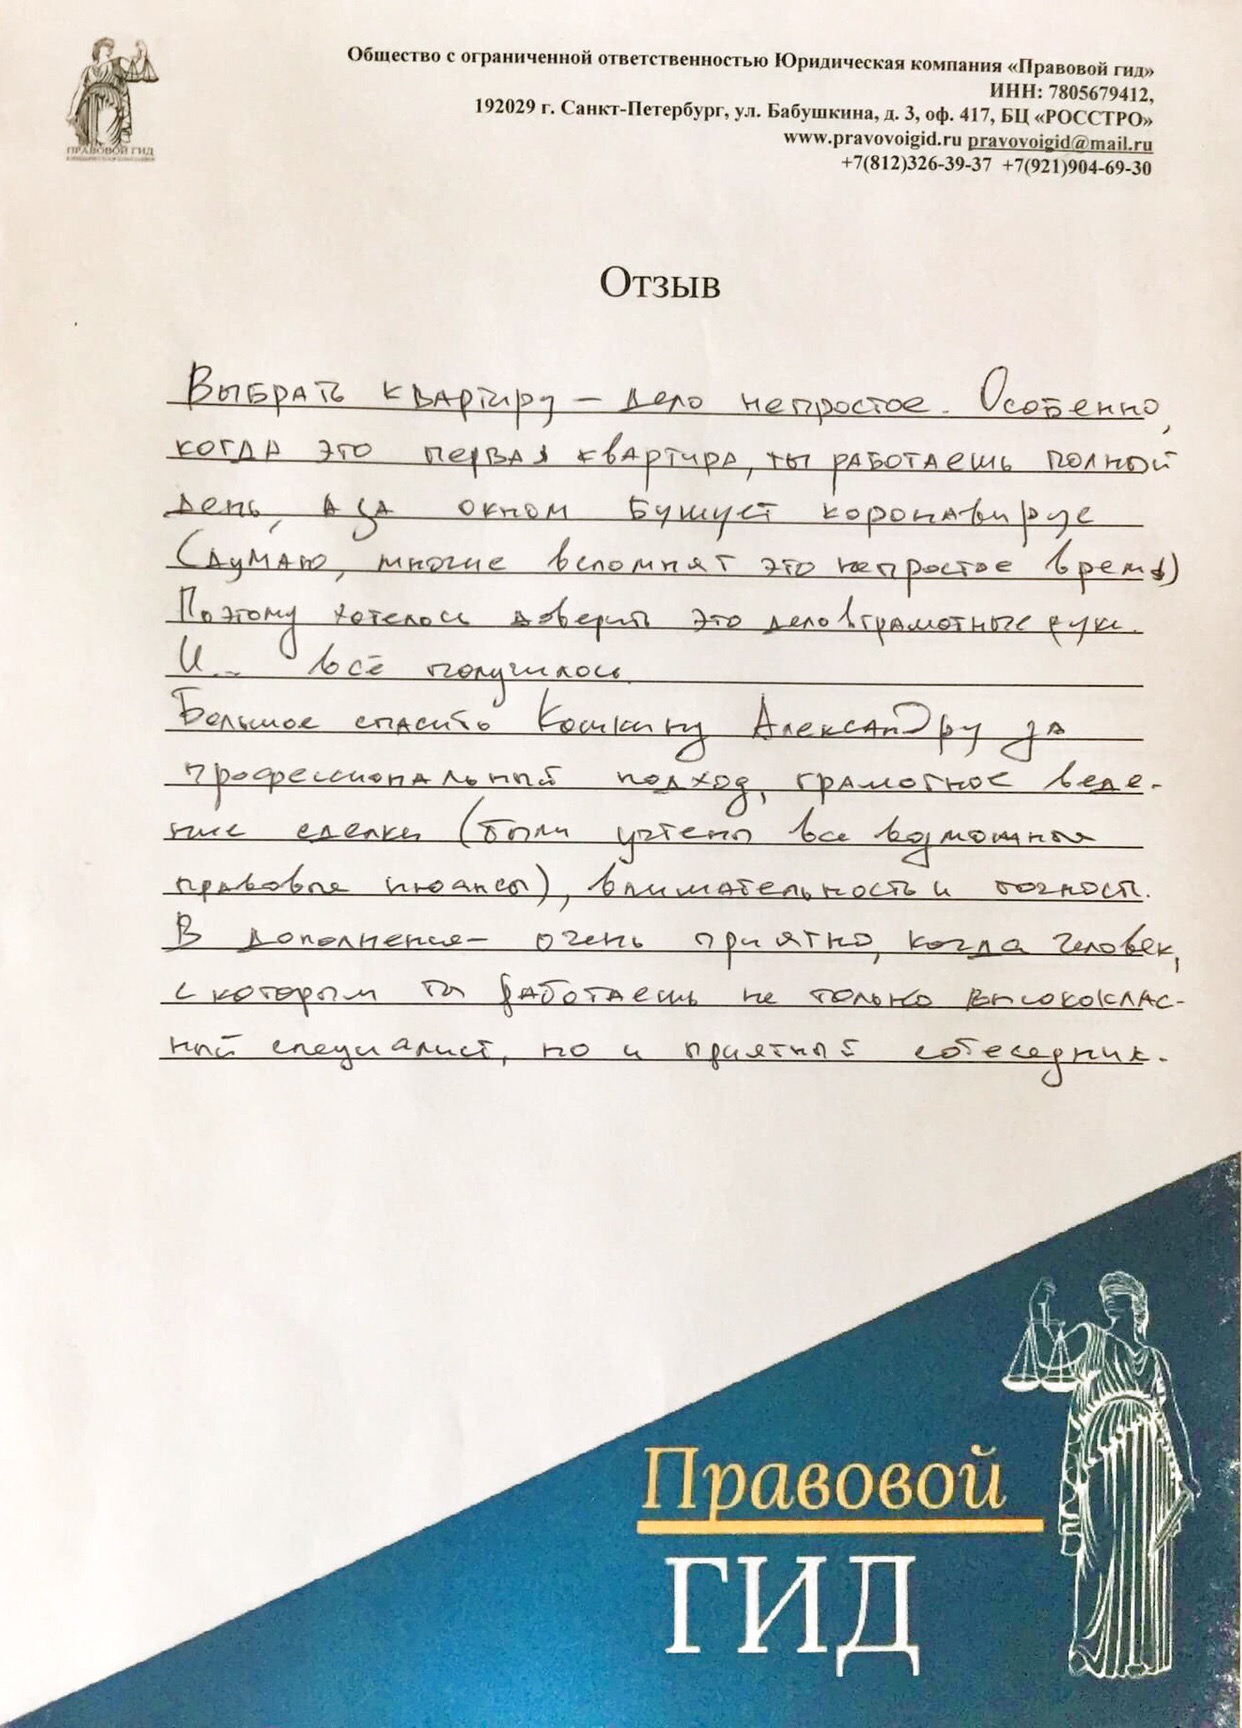 Общество с ограниченной ответственностью Юридическая компания «Правовой гид»
ИНН: 7805679412,
192029 г. Санкт-Петербург, ул. Бабушкина, д. 3, оф. 417, БЦ «РОССТРО»
www.pravovoigid.ru pravovoigid@mail.ru
+7(812)326-39-37 +7(921)904-69-30
ПРАВОВОЙ ГИД
Отзыв
Выбрать квартиру – дело непростое. Особенно,
когда это первая квартира, ты работаешь полный
день, а за окном бушует коронавирус
(думаю, многие вспомнят это непростое время)
Поэтому хотелось доверить это дело в грамотные руки.
И... всё получилось.
Большое спасибо Кошкину Александру за
профессиональный подход, грамотное веде-
ние сделки (были учтены все возможные
правовые нюансы), внимательность и точность.
В дополнение – очень приятно, когда человек,
с которым ты работаешь не только высококлас-
ный специалист, но и приятный собеседник.
Правовой
ГИД